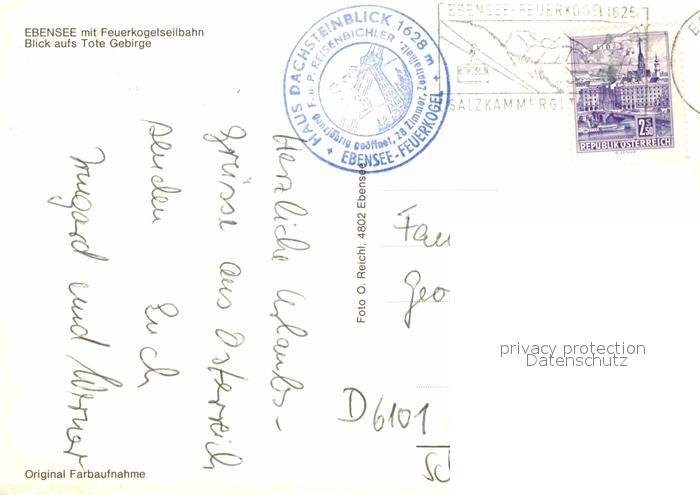 EBENSEE mit Feuerkogelseilbahn
Blick aufs Tote Gebirge
HAUS DACHSTEINBLICK 1628 m
F. u. P. REISENBICHLER
ganzjährig geöffnet, 28 Zimmer, Zentralheiz.
+ EBENSEE-FEUERKOGEL +
EBENSEE-FEUERKOGEL 1625
SALZKAMMERG
2.50
REPUBLIK ÖSTERREICH
Herzliche Urlaubs-
grüsse aus Österreich
senden Euch
Irmgard und Werner
Foto O. Reichl, 4802 Ebensee
Fam
Geo
D 6101
privacy protection
Datenschutz
Original Farbaufnahme